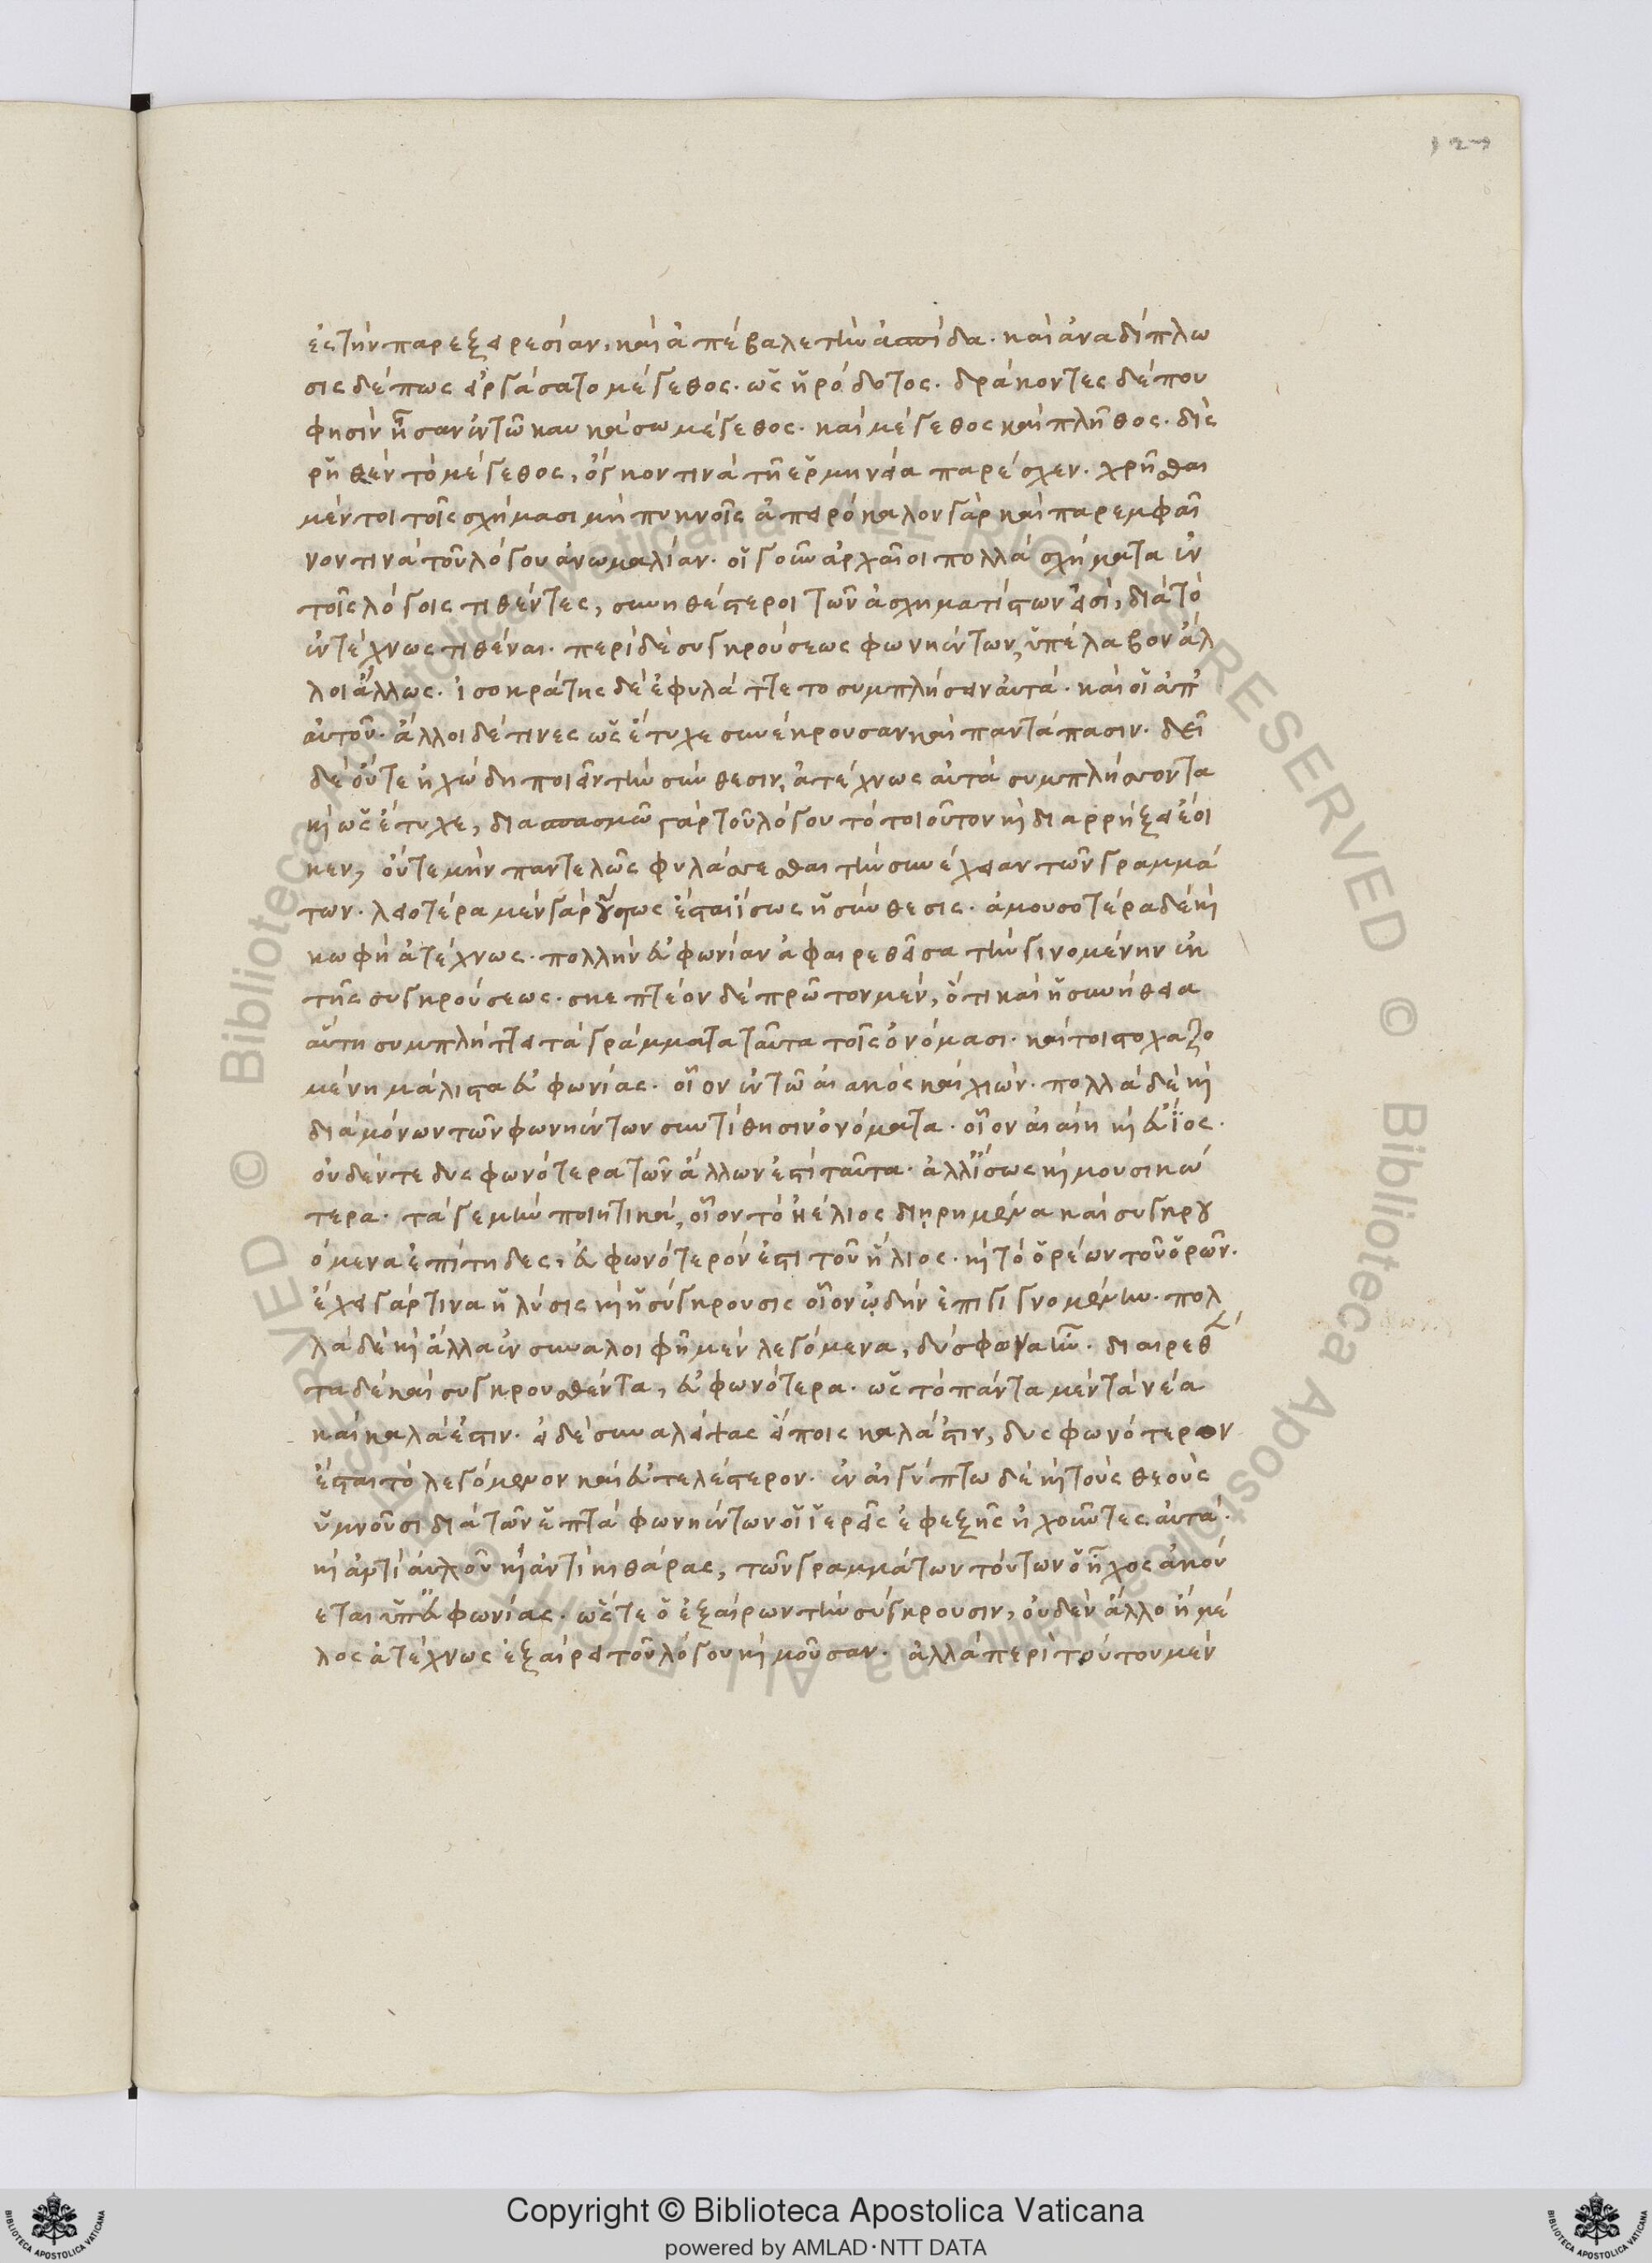 ἐς τὴν παρεξειρεσίαν, καὶ ἀπέβαλε τὴν ἀσπίδα. καὶ ἀναδίπλω
σις δέ πως εἰργάσατο μέγεθος. ὡς ἡρόδοτος. δράκοντες δέ που
φησὶν ἦσαν ἐν τῶ καυκάσω μέγεθος. καὶ μέγεθος καὶ πλῆθος. δὶς
ῥηθὲν τὸ μέγεθος, ὄγκον τινὰ τῆ ἑρμηνεία παρέσχεν. χρῆσθαι
μέντοι τοῖς σχήμασι μὴ πυκνοῖς ἀπειρόκαλον γὰρ καὶ παρεμφαῖ
νον τινὰ τοῦ λόγου ἀνωμαλίαν. οἱ γοῦν ἀρχαῖοι πολλὰ σχήματα ἐν
τοῖς λόγοις τιθέντες, συνηθέστεροι τῶν ἀσχηματίστων εἰσὶ, διὰ τὸ
ἐντέχνως τιθέναι. περὶ δὲ συγκρούσεως φωνηέντων, ὑπέλαβον ἄλ
λοι ἄλλως. ἰσοκράτης δὲ ἐφυλάττετο συμπλήσειν αὐτά. καὶ οἱ ἀπ'
αὐτοῦ. ἄλλοι δέ τινες ὡς ἔτυχε συνέκρουσαν καὶ παντάπασιν. δεῖ
δὲ οὔτε ἠχώδη ποιεῖν τὴν σύνθεσιν, ἀτέχνως αὐτὰ συμπλήσσοντα
κὶ ὡς ἔτυχε, διασπασμῶ γὰρ τοῦ λόγου τὸ τοιοῦτον κὶ διαρρήξει ἔοι
κεν, οὔτε μὴν παντελῶς φυλάσσεσθαι τὴν συνέχειαν τῶν γραμμά
των. λειοτέρα μὲν γὰρ οὕτως ἔσται ἴσως ἡ σύνθεσις. ἀμουσοτέρα δὲ κὶ
κωφὴ ἀτέχνως. πολλὴν εὐφωνίαν ἀφαιρεθεῖσα τὴν γινομένην ἐκ
τῆς συγκρούσεως. σκεπτέον δὲ πρῶτον μὲν, ὅτι καὶ ἡ συνήθεια
αὐτὴ συμπλήττει τὰ γράμματα ταῦτα τοῖς ὀνόμασι. καίτοι στοχαζο
μένη μάλιστα εὐφωνίας. οἷον ἐν τῶ αἰακὸς καὶ χιών. πολλὰ δὲ κὶ
διὰ μόνων τῶν φωνηέντων συντίθησιν ὀνόματα. οἷον αἰαίη κὶ εὔϊος.
οὐδέν τε δυσφωνότερα τῶν ἄλλων ἐστὶ ταῦτα. ἀλλ' ἴσως κὶ μουσικώ
τερα. τά γε μὴν ποιητικὰ, οἷον τὸ ἠέλιος διῃρημένα καὶ συγκρου
όμενα ἐπίτηδες, εὐφωνότερόν ἐστι τοῦ ἥλιος. κὶ τὸ ὀρέων τοῦ ὀρῶν.
ἔχει γάρ τινα ἡ λύσις κὶ ἡ σύγκρουσις οἷον ὠδὴν ἐπιγιγνομένην. πολ
λὰ δὲ κὶ ἄλλα ἐν συναλοιφῆ μὲν λεγόμενα, δύσφωνα ἦν. διαιρεθέν
τα δὲ καὶ συγκρουσθέντα, εὐφωνότερα. ὡς τὸ πάντα μὲν τὰ νέα
καὶ καλά ἐστιν. εἰ δὲ συναλείψας εἴποις καλά 'στιν, δυσφωνότερον
ἔσται τὸ λεγόμενον καὶ εὐτελέστερον. ἐν αἰγύπτω δὲ κὶ τοὺς θεοὺς
ὑμνοῦσι διὰ τῶν ἑπτὰ φωνηέντων οἱ ἱερεῖς ἐφεξῆς ἠχοῦντες αὐτά.
κὶ ἀντὶ αὐλοῦ κὶ ἀντὶ κιθάρας, τῶν γραμμάτων τούτων ὁ ἦχος ἀκού
εται ὑπ' εὐφωνίας. ὥστε ὁ ἐξαίρων τὴν σύγκρουσιν, οὐδὲν ἄλλο ἢ μέ
λος ἀτέχνως ἐξαίρει τοῦ λόγου κὶ μοῦσαν. ἀλλὰ περὶ τούτου μὲν
Copyright © Biblioteca Apostolica Vaticana
powered by AMLAD·NTT DATA